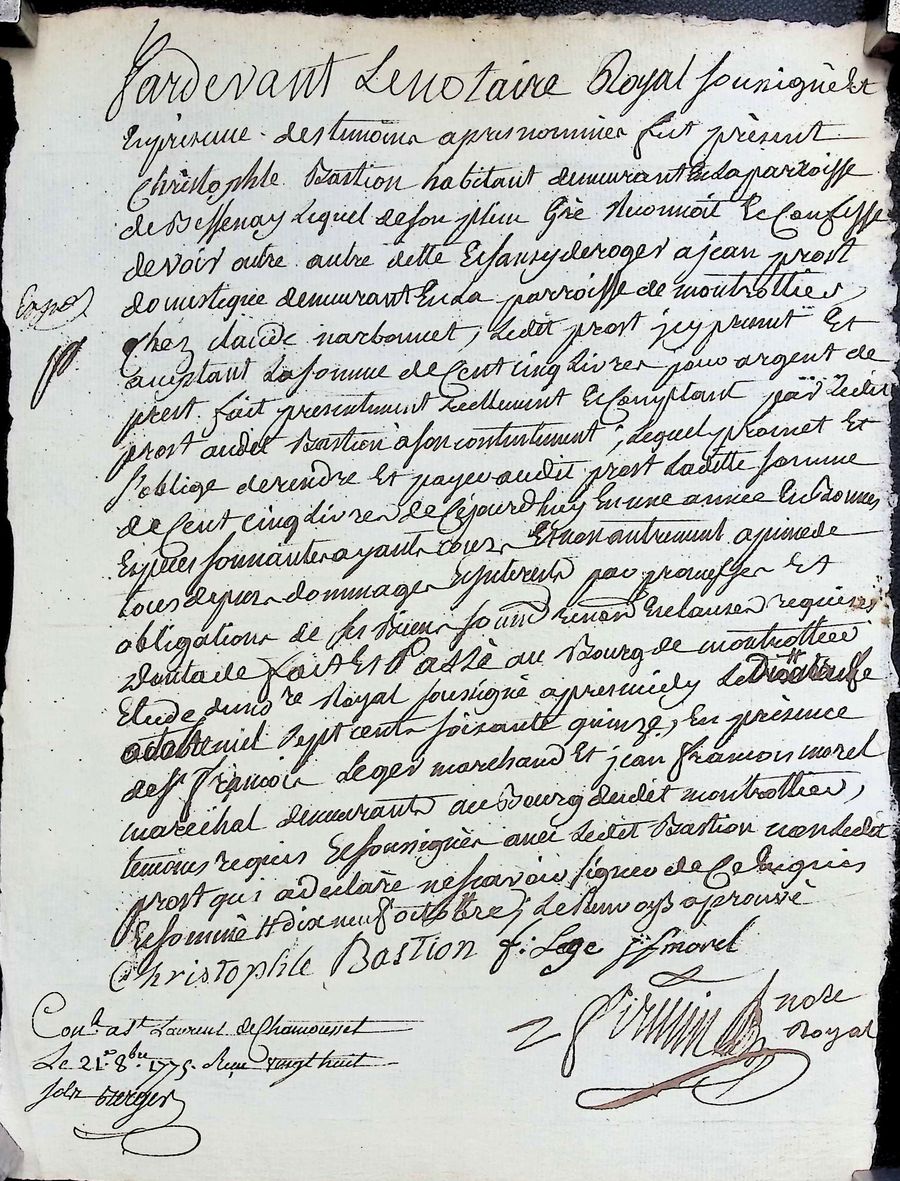 Pardevant Le notaire Royal soussigné Et
En présence des temoins apres nommés fut présent
Christophle Bastion habitant demeurant En La parroisse
de Bessenay Lequel de son plein Gré Reconnoit Et Confesse
devoir outre autre dette Et sans y deroger a jean prost
domestique demeurant En La parroisse de montrottier
Chez claude narbonnet, Ledit prost jcy present Et
acceptant La somme de Cent cinq Livres pour argent de
prest fait presentement reellement Et Comptant par Ledit
prost audit Bastion à son contentement, Lequel promet Et
s'oblige de rendre Et payer audit prost Laditte somme
de Cent cinq Livres de Cejourdhuy En une année En Bonnes
Especes sonnantes ayant cours Et non autrement a peine de
tous depens dommages Et Interests par promesses Et
obligations de ses Biens soumis renon Et clauses requises
Dont acte fait Et Passé au Bourg de montrottier
Etude du no.re Royal soussigné apres midy Le
mil Sept cent soixante quinze, En présence
de Sr françois Leger marchand Et jean françois morel
maréchal demeurants au Bourg dudit montrottier,
temoins requis Et soussignés avec Ledit Bastion non Ledit
prost qui a declaré ne scavoir signer de Ce Enquis
Et sommé # dix neuf octobre, Le Renvoy aprouvé
Christophle Bastion f: Lege jfmorel
firmin nore
Royal
Con.le a St Laurent de Chamousset
Le 21.e 8.bre 1775. Reçu vingt huit
sols